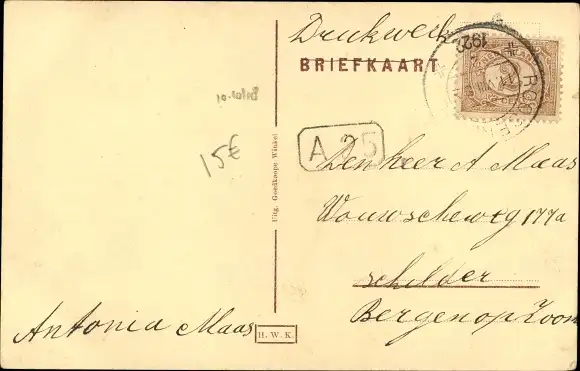 Drukwerk
BRIEFKAART
1922
15€
A 25
Uitg. Goedkoope Winkel
Den heer A Maas
Wouwscheweg 177a
schilder
Bergen op Zoom
Antonia Maas
H. W. K.